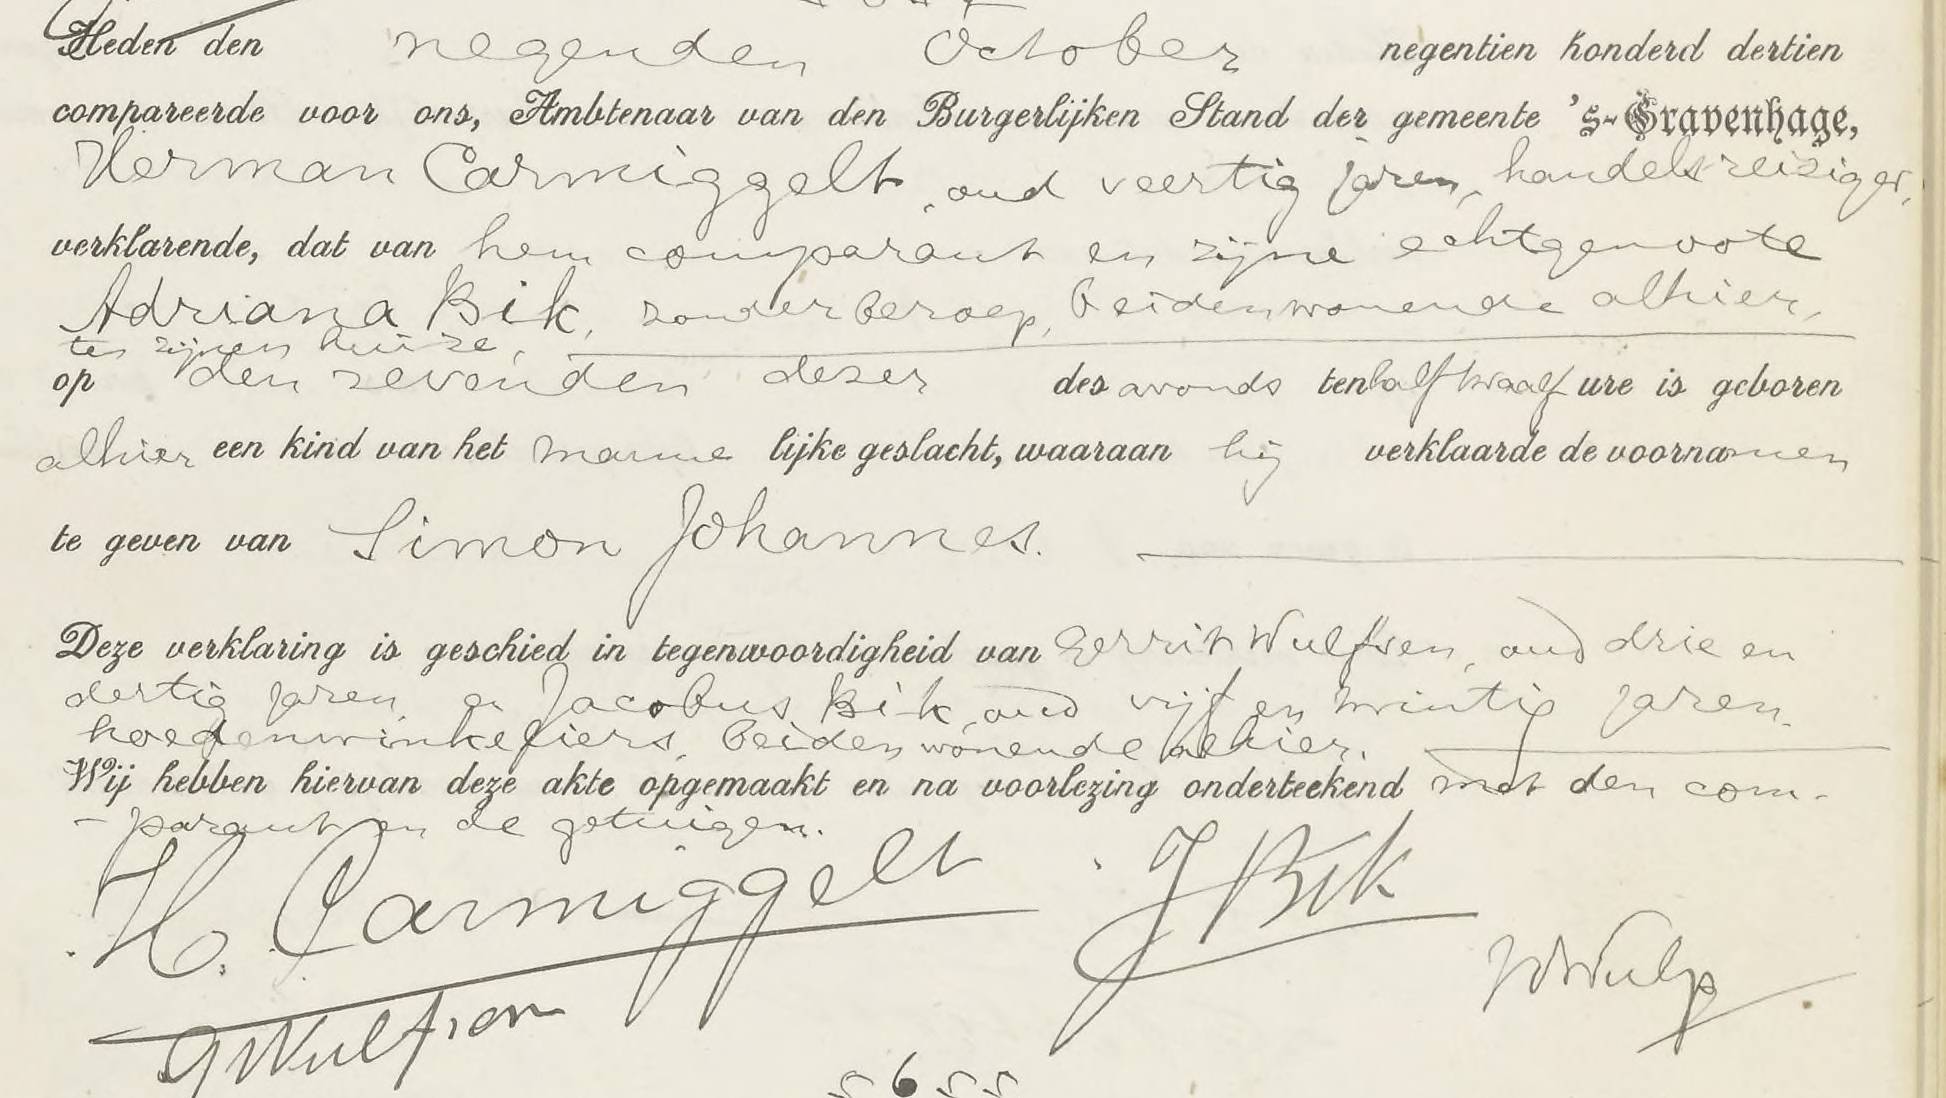 Heden den negenden October negentien honderd dertien
compareerde voor ons, Ambtenaar van den Burgerlijken Stand der gemeente 's-Gravenhage,
Herman Carmiggelt, oud veertig jaren, handelsreiziger,
verklarende, dat van hem comparant en zijne echtgenoote
Adriana Bik, zonder beroep, beiden wonende alhier,
ten zijnen huize,
op den zevenden dezer des avonds ten half twaalf ure is geboren
alhier een kind van het manne lijke geslacht, waaraan hij verklaarde de voornamen
te geven van Simon Johannes.
Deze verklaring is geschied in tegenwoordigheid van Gerrit Wulfsen, oud drie en
dertig jaren, en Jacobus Bik, oud vijf en twintig jaren,
hoedenwinkeliers, beiden wonende alhier.
Wij hebben hiervan deze akte opgemaakt en na voorlezing onderteekend met den com-
-parant en de getuigen.
H. Carmiggelt JBik
WWulp
GWulfsen
5655